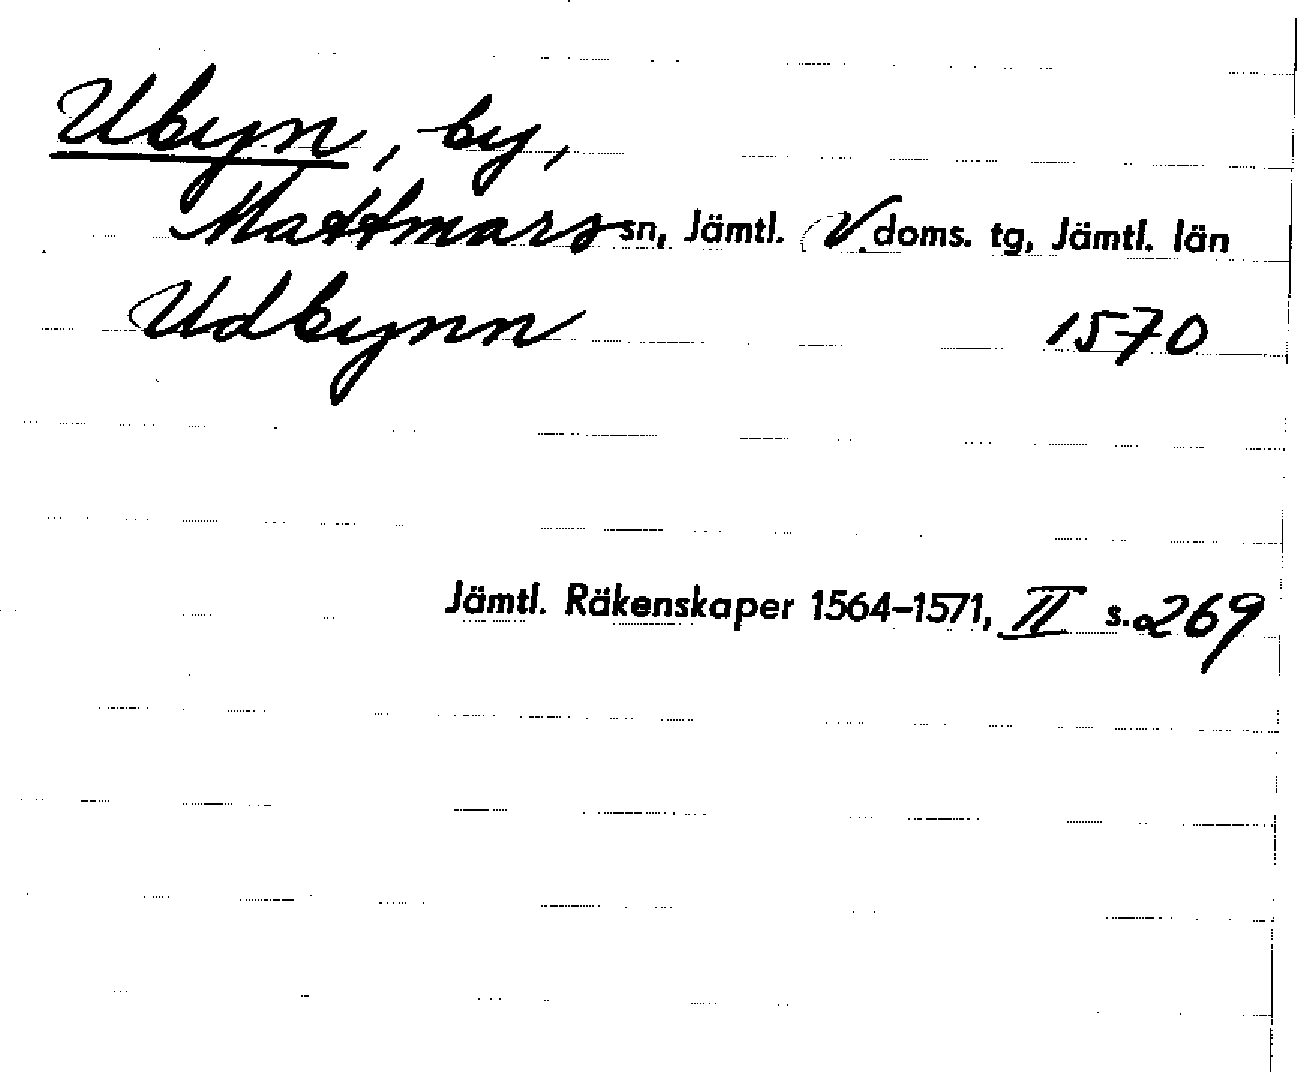 Ubyn, by,
Mattmars sn, Jämtl. V. doms. tg, Jämtl. län
Udbynn 1570
Jämtl. Räkenskaper 1564–1571, II s. 269